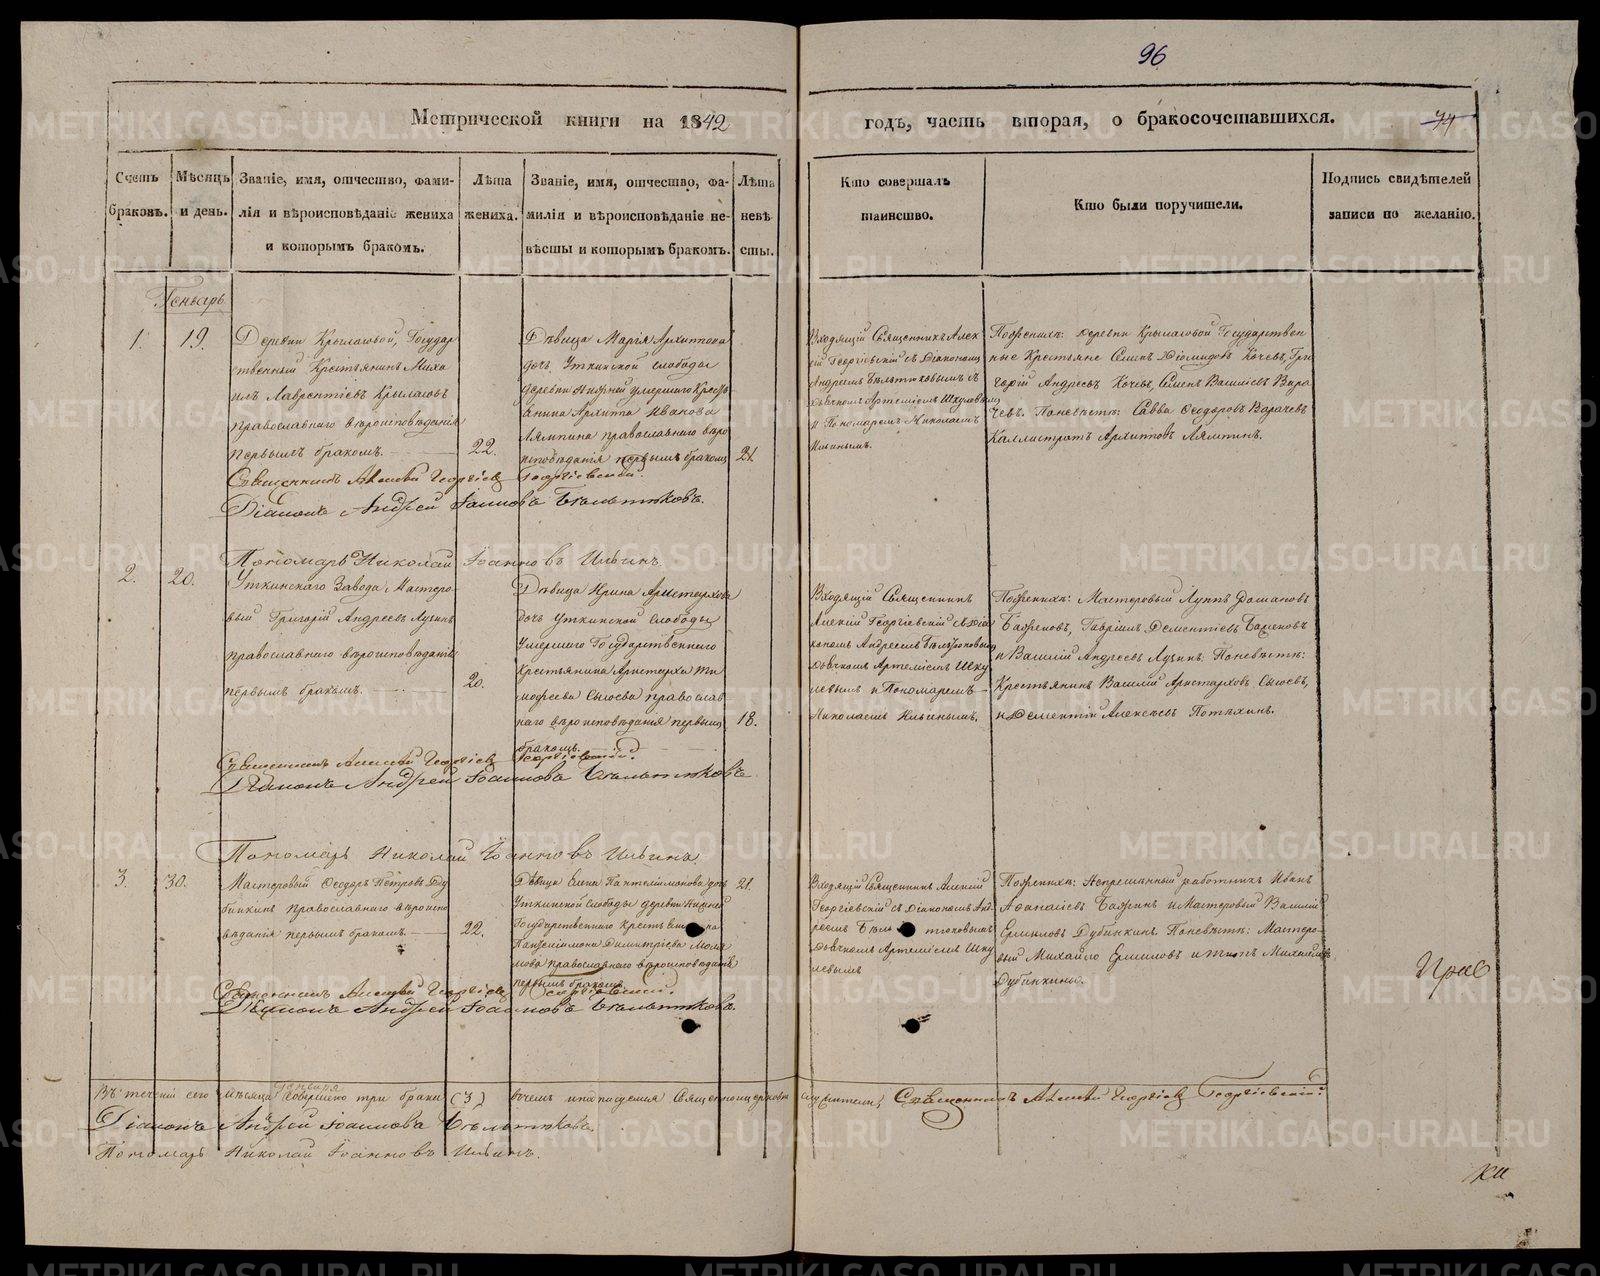 96
Метрической книги на 1842
годъ, часть вторая, о бракосочетавшихся.
74
Счетъ браковъ.
Мѣсяцъ и день.
Званіе, имя, отчество, фами-
лія и вѣроисповѣданіе жениха
и которымъ бракомъ.
Лѣта
жениха.
Званіе, имя, отчество, фа-
милія и вѣроисповѣданіе не-
вѣсты и которымъ бракомъ.
Лѣта
невѣ
сты.
Кто совершалъ
таинство.
Кто были поручители.
Подпись свидѣтелей
записи по желанію.
Генварь
1.
19.
Деревни Крыласовой, Государ
ственный Крестьянинъ Миха
илъ Лаврентіевъ Крыласовъ
православнаго вѣроисповѣданія
первымъ бракомъ.
22.
Дѣвица Марія Архипова
дочь Уткинской слободы
деревни Нижней умершаго Кресть
янина Архипа Иванова
Лямпина православнаго вѣро
исповѣданія первымъ бракомъ
21.
Входящій Священникъ Алек
сій Георгіевскій съ Діакономъ
Андреемъ Бѣльтюковымъ съ
Дьячкомъ Артеміемъ Шкулевымъ
и Пономаремъ Николаемъ
Ильинымъ.
Пожених: деревни Крыласовой Государствен
ные Крестьяне Семенъ Діомидовъ Кочевъ, Гри
горій Андреевъ Кочевъ, Семенъ Васильевъ Вара
чевъ. Поневѣстѣ: Савва Ѳеодоровъ Варачевъ
Каллистратъ Архиповъ Лямпинъ.
Священникъ Алексѣй Георгіевъ Георгіевскій.
Діаконъ Андрей Іоанновъ Бѣльтюковъ.
Пономарь Николай Іоанновъ Ильинъ
2.
20.
Уткинскаго Завода Мастеро-
вый Григорій Андреевъ Лузинъ
православнаго вѣроисповѣданія
первымъ бракомъ.
20.
Дѣвица Ирина Аристархова
дочь Уткинской Слободы
умершаго Государственнаго
Крестьянина Аристарха Ти
мофеева Сысоева православ
наго вѣроисповѣданія первымъ
бракомъ.
18.
Входящій Священникъ
Алексій Георгіевскій съ Діа
кономъ Андреемъ Бѣльтюковымъ
Дьячкомъ Артеміемъ Шку
левымъ и Пономаремъ
Николаемъ Ильинымъ.
Пожених: Мастеровый Лупъ Романовъ
Баженовъ, Гавріилъ Дементіевъ Баженовъ
и Василій Андреевъ Лузинъ. Поневѣстѣ:
Крестьянинъ Василій Аристарховъ Сысоевъ,
и Дементій Алексѣевъ Потѣхинъ.
Священникъ Алексѣй Георгіевъ Георгіевскій.
Діаконъ Андрей Іоанновъ Бѣльтюковъ
Пономарь Николай Іоанновъ Ильинъ
3.
30.
Мастеровый Ѳеодоръ Петровъ Ду
бинкинъ православнаго вѣроиспо
вѣданія первымъ бракомъ.
22.
Дѣвица Елена Пантелимонова дочь
Уткинской Слободы деревни Нижней
Государственнаго Крестьянина
Пантелимона Димитріева
православнаго вѣроисповѣданія
первымъ бракомъ
21.
Входящій Священникъ Алексій
Георгіевскій съ Діакономъ Анд
реемъ Бѣльтюковымъ
Дьячкомъ Артеміемъ Шку
левымъ
Пожених: Непремѣнный работникъ Иванъ
Афанасіевъ Бажинъ и Мастеровый Василій
Ермиловъ Дубинкинъ. Поневѣстѣ: Мастеро-
вый Михайло Ермиловъ и Титъ Михайловъ
Дубинкины.
Священникъ Алексѣй Георгіевъ Георгіевскій.
Діаконъ Андрей Іоанновъ Бѣльтюковъ.
Въ теченіи сего мѣсяца Генваря совершено три брака (3) въ чемъ и подписуемся Священноцерковнослужители, Священникъ Алексѣй Георгіевъ Георгіевскій.
Діаконъ Андрей Іоанновъ Бѣльтюковъ.
Пономарь Николай Іоанновъ Ильинъ.
METRIKI.GASO-URAL.RU